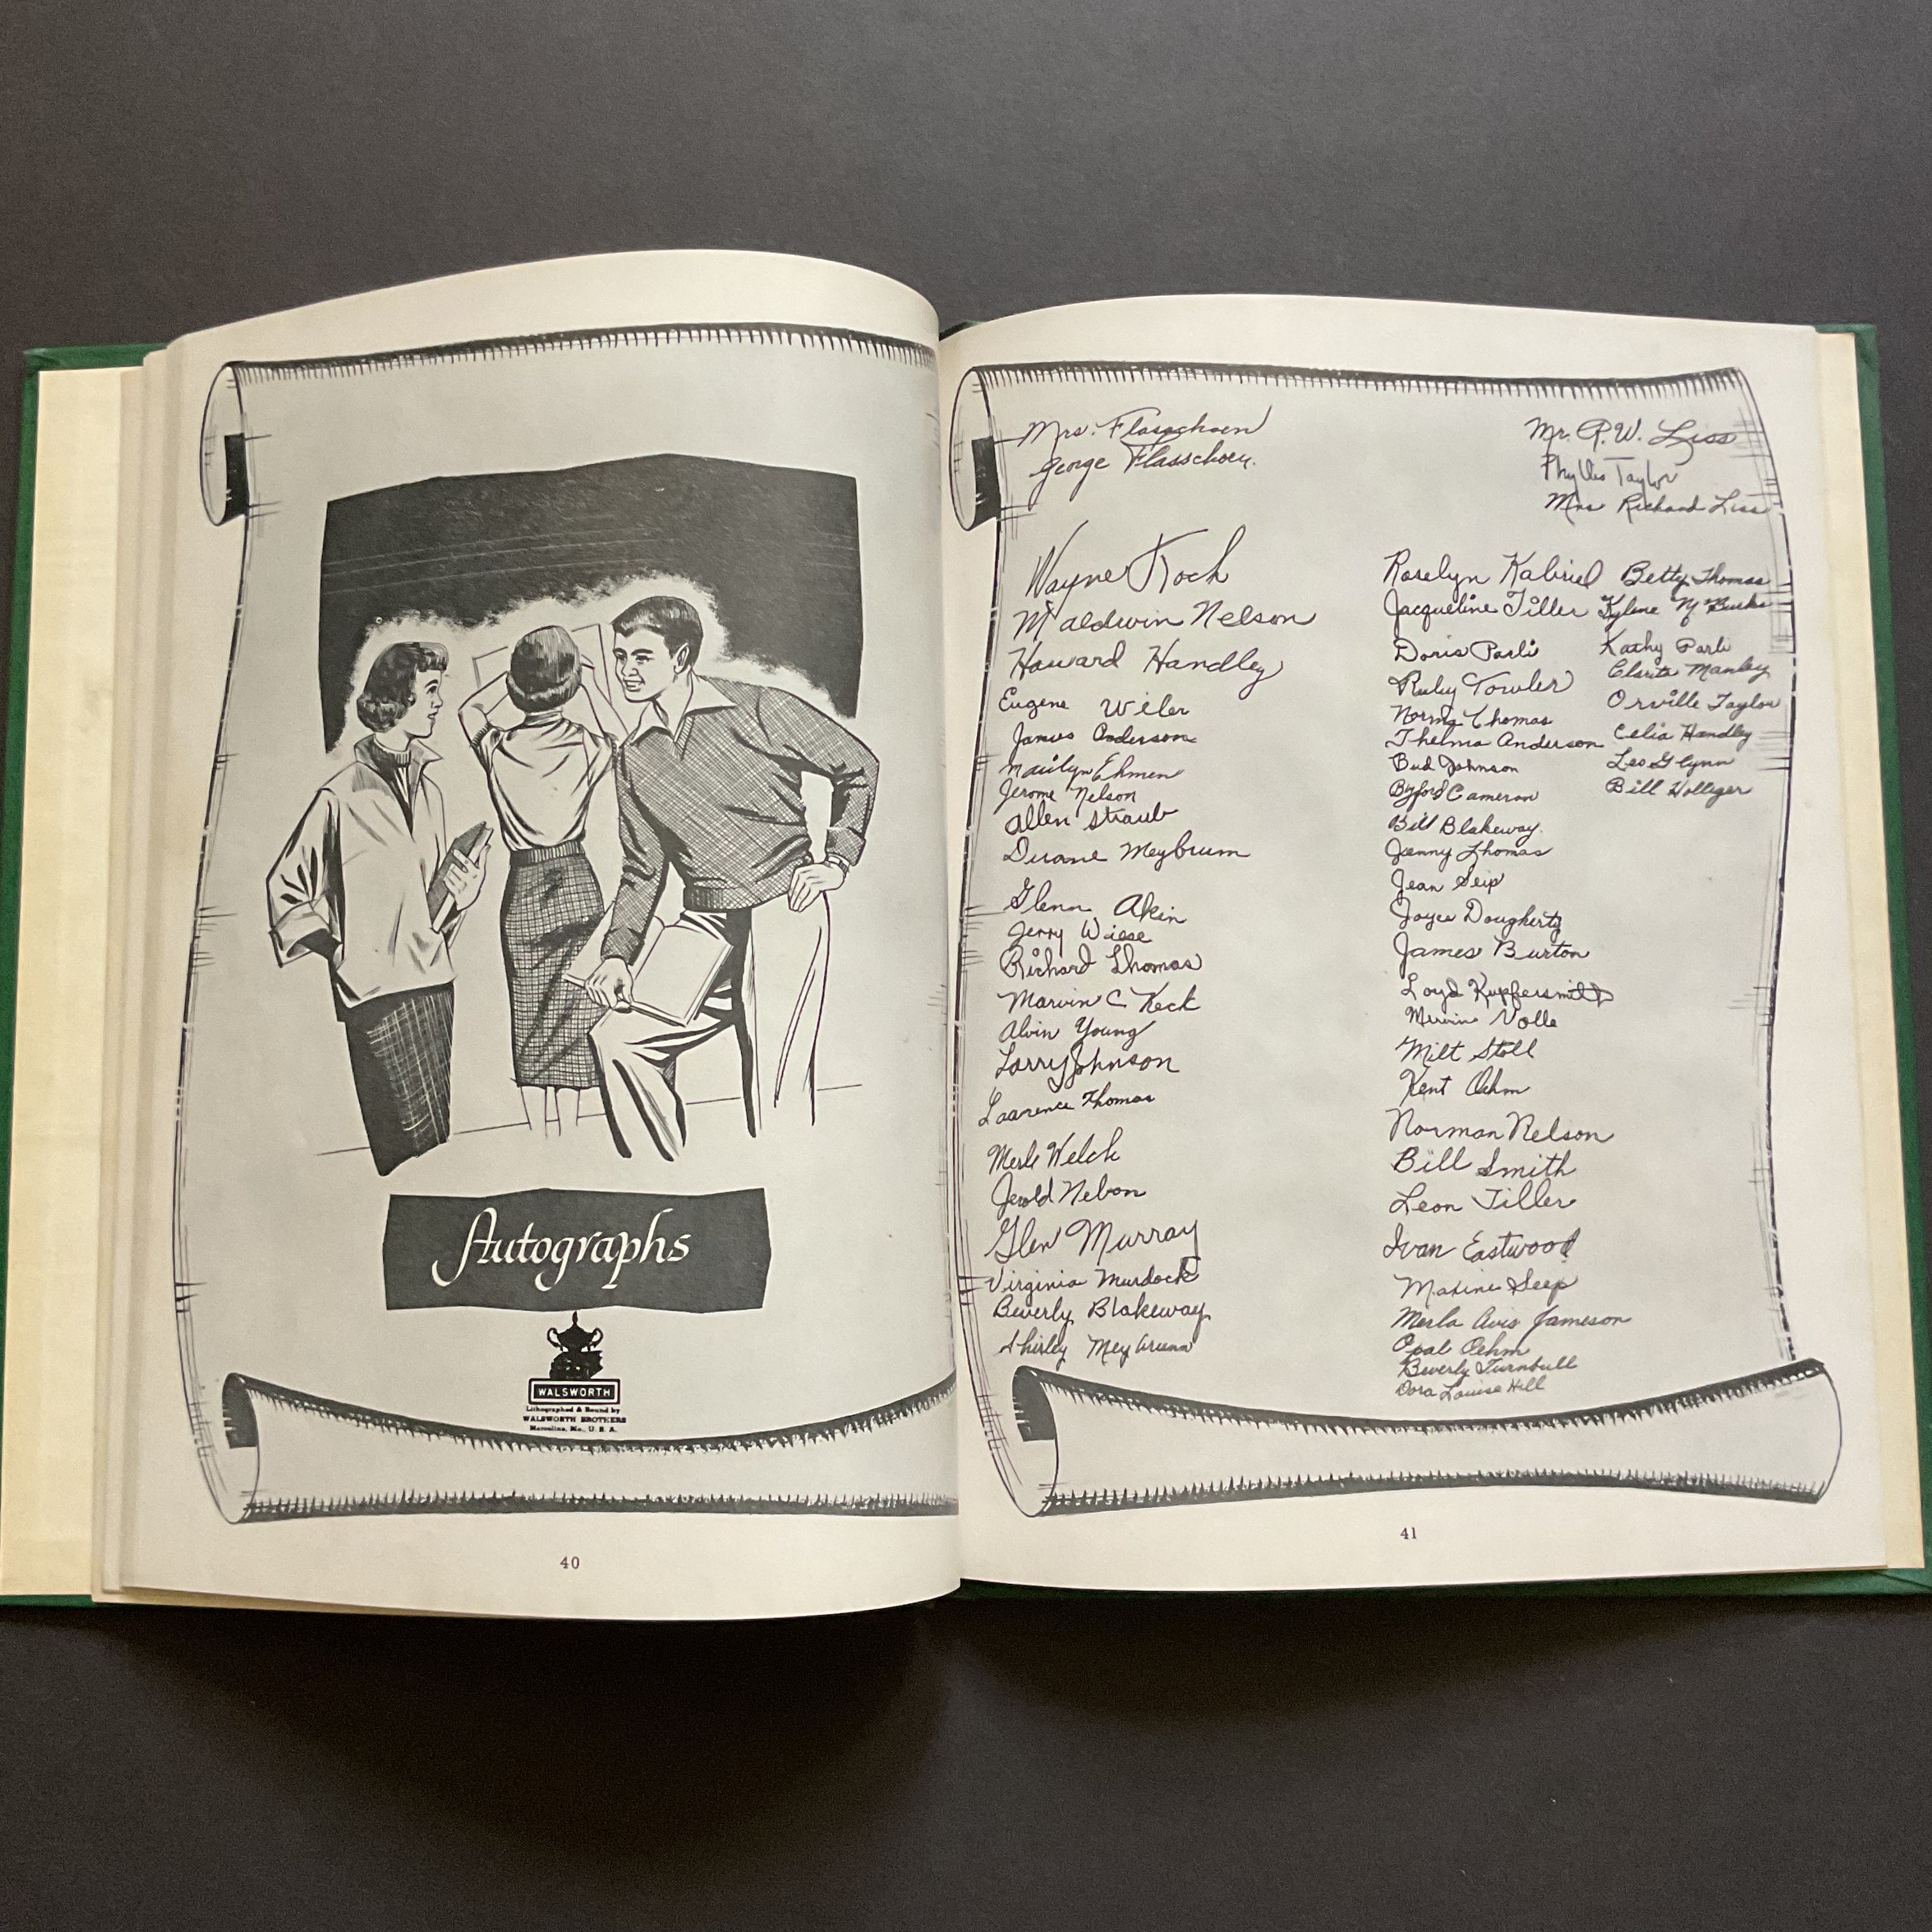 Autographs
WALSWORTH
Lithographed & Bound by
WALSWORTH BROTHERS
Marceline, Mo., U. S. A.
40
Mrs. Flasschoen
George Flasschoen
Mr. R. W. Liss
Phyllis Taylor
Mrs Richard Liss
Wayne Koch
Maldwin Nelson
Howard Handley
Eugene Wiler
James Anderson
Marilyn Ehmen
Jerome Nelson
Allen Straub
Duane Meybrum
Glenn Akin
Jerry Wiese
Richard Thomas
Marvin C Keck
Alvin Young
Larry Johnson
Lawrence Thomas
Merle Welch
Jerold Nelson
Glen Murray
Virginia Murdock
Beverly Blakeway
Shirley
Roselyn Kabriel
Jacqueline Tiller
Doris Parli
Ruby Towler
Norma Thomas
Thelma Anderson
Bud Johnson
Byford Cameron
Bill Blakeway
Jenny Thomas
Jean Seip
Joyce Dougherty
James Burton
Loyd Kupfersmith
Mervin Nolle
Milt Stoll
Kent Oehm
Norman Nelson
Bill Smith
Leon Tiller
Ivan Eastwood
Maxine Seep
Merla Avis Jameson
Opal Oehm
Beverly Turnbull
Dora Louise Hill
Betty Thomas
Kathy Parli
Manley
Orville Taylor
Celia Handley
Leo Glynn
Bill Holliger
41